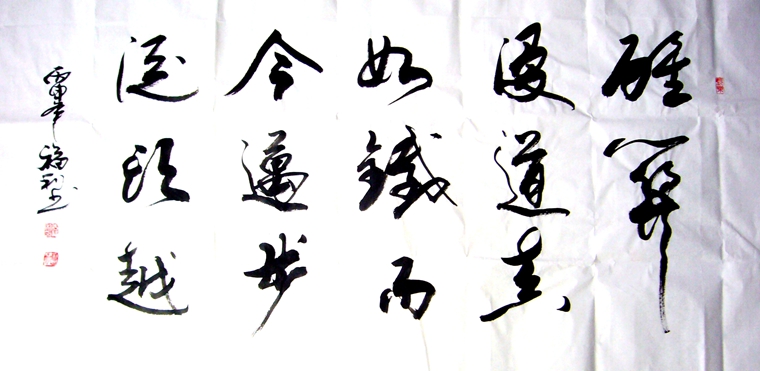 雄關
漫道真
如鐵而
今邁步
從頭越
福书